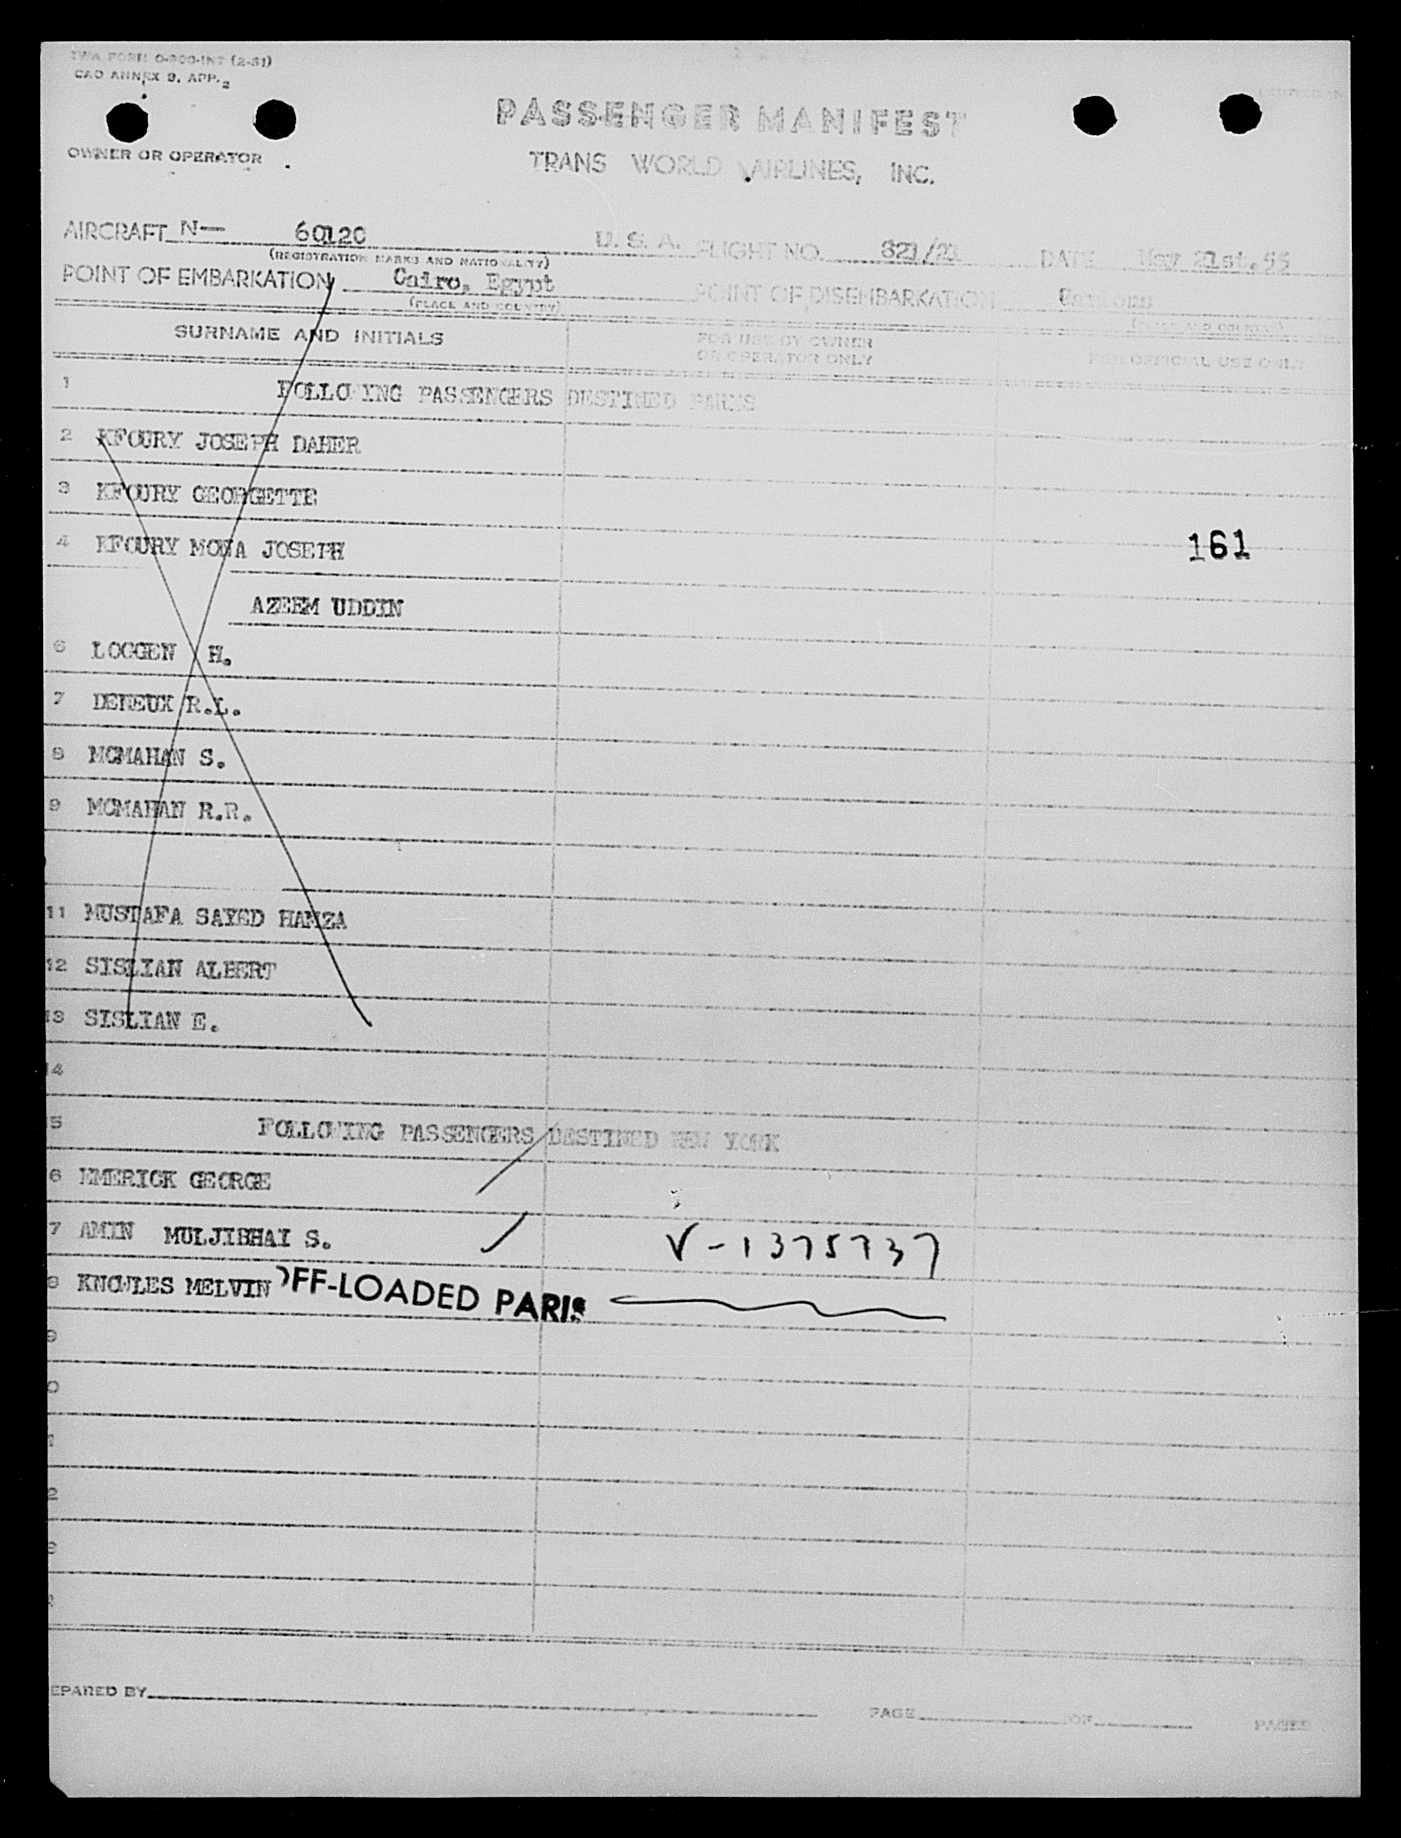 TWA FORM O-800-INT (2-51)
CAO ANNEX 9, APP. 2
PASSENGER MANIFEST
OWNER OR OPERATOR TRANS WORLD AIRLINES, INC.
AIRCRAFT N— 60120 U. S. A. FLIGHT NO. 821/21 DATE May 21st.55
(REGISTRATION MARKS AND NATIONALITY)
POINT OF EMBARKATION Cairo, Egypt POINT OF DISEMBARKATION
(PLACE AND COUNTRY) (PLACE AND COUNTRY)
SURNAME AND INITIALS FOR USE BY OWNER OR OPERATOR ONLY FOR OFFICIAL USE ONLY
1 FOLLOWING PASSENGERS DESTINED PARIS
2 KFOURY JOSEPH DAHER
3 KFOURY GEORGETTE
4 KFOURY MONA JOSEPH 161
AZEEM UDDIN
6 LOGGEN H.
7 DENEUX R.L.
8 MCMAHAN S.
9 MCMAHAN R.R.
11 MUSTAFA SAYED HAMZA
12 SISLIAN ALBERT
13 SISLIAN E.
14
5 FOLLOWING PASSENGERS DESTINED NEW YORK
6 EMERICK GEORGE
7 AMIN MULJIBHAI S. V-1375737
8 KNOWLES MELVIN OFF-LOADED PARIS
9
0
1
2
3
EPARED BY PAGE OF PAGES